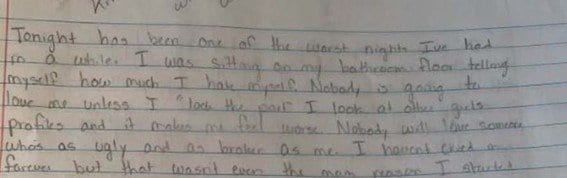 Tonight has been one of the worst nights Ive had
in a while. I was sitting on my bathroom floor telling
myself how much I hate myself. Nobody is going to
love me unless I "look the part" I look at other girls
profiles and it makes me feel worse. Nobody will love someone
who's as ugly and as broken as me I havent cried
forever but that wasn't even the main reason I started